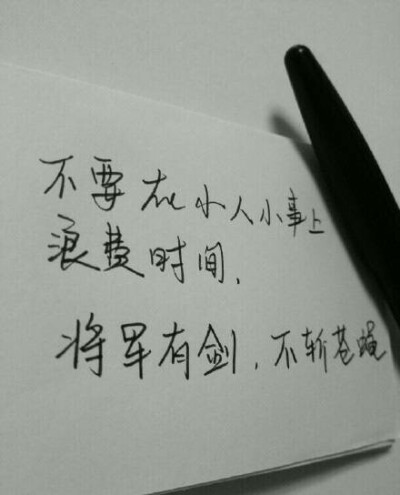 不要在小人小事上
浪费时间.
将军有剑.不斩苍蝇